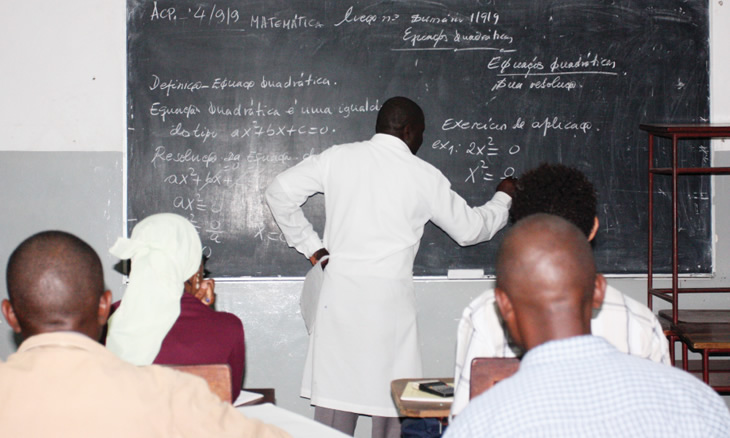 ACP. 4/9/9 MATEMÁTICA Liçao nº Sumário 1/9/9
Equaçoes Quadráticas
Equaçoes Quadráticas
Sua resoluçao.
Definiçao - Equaçao Quadrática.
Equaçao Quadrática é uma igualda
do tipo ax²+bx+c=0.
Resoluçao Equaçao
ax²+bx+
ax²=0
x²=0
Exercicio de aplicaçao.
ex1: 2x²=0
x²=0